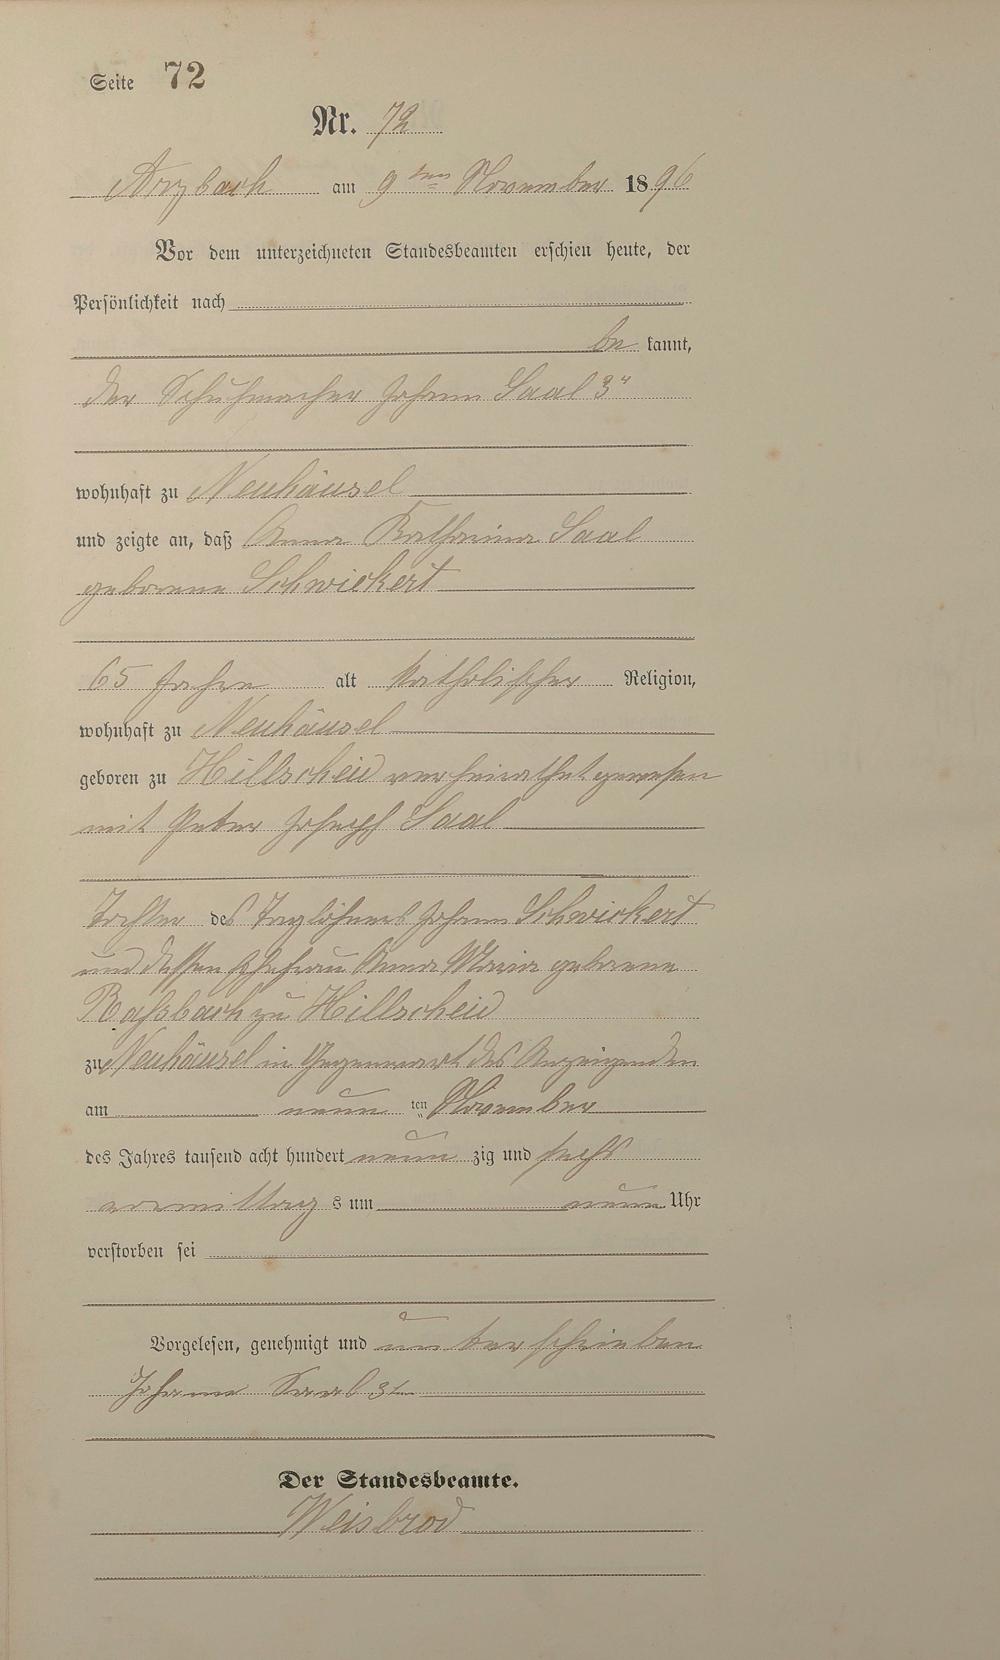 Seite 72
Nr. 72
Arzbach am 9ten November 1896
Vor dem unterzeichneten Standesbeamten erschien heute, der
Persönlichkeit nach
be kannt,
der Schuhmacher Johann Saal 3r
wohnhaft zu Neuhäusel
und zeigte an, daß Anna Katharina Saal
geborene Schwickert
65 Jahre alt katholischer Religion,
wohnhaft zu Neuhäusel
geboren zu Hillscheid verheirathet gewesen
mit Peter Joseph Saal
Tochter des Taglöhners Johann Schwickert
und dessen Ehefrau Anna Maria geborene
zu Hillscheid
zu Neuhäusel in Gegenwart des Anzeigenden
am neun ten November
des Jahres tausend acht hundert neun zig und sechs
vormittag s um neun Uhr
verstorben sei
Vorgelesen, genehmigt und unterschrieben
Johann Saal
Der Standesbeamte.
Weisbrod